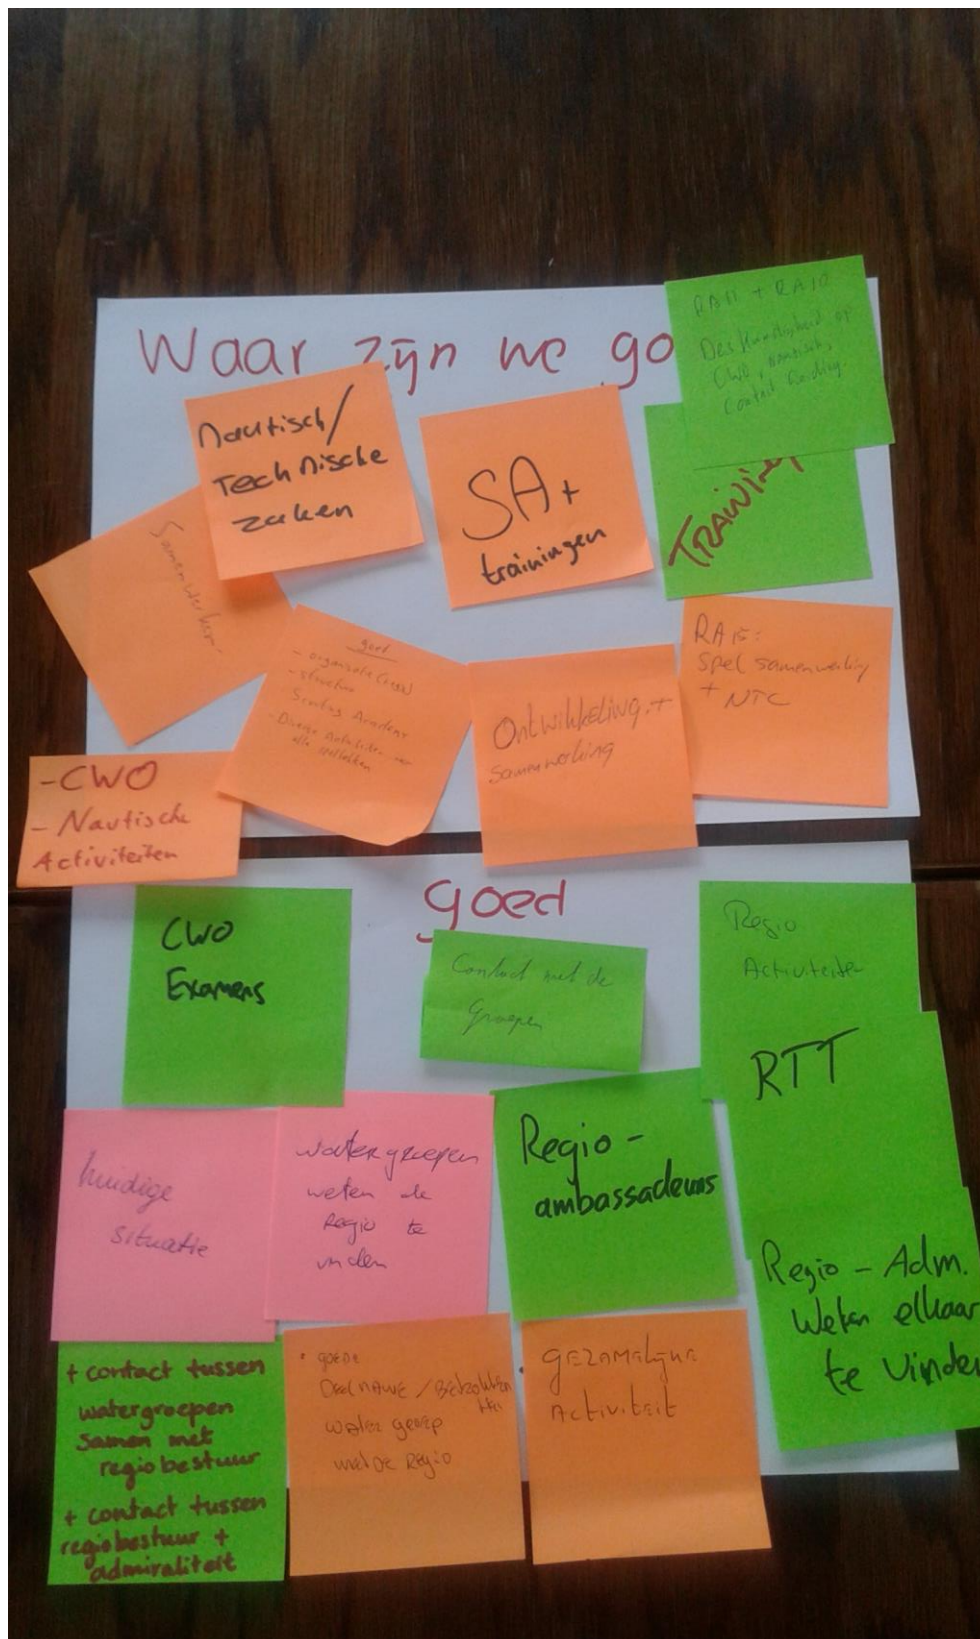 Waar zijn we go
RA11 + RA10
Deskundigheid op
CWO, nautisch,
Contact
TRAINING
Nautisch/
Technische
zaken
SA+
trainingen
Samenwerken
goed
- organisatie
- structuur
Scouting Academy
- Diverse Activiteiten voor
alle speltakken
Ontwikkeling +
Samenwerking
RA15:
Spel samenwerking
+ NTC
- CWO
- Nautische
Activiteiten
goed
CWO
Examens
Contact met de
Groepen
Regio
Activiteiten
RTT
huidige
situatie
watergroepen
weten de
Regio te
vinden
Regio -
ambassadeurs
Regio - Adm.
Weten elkaar
te vinden
+ contact tussen
watergroepen
samen met
regiobestuur
+ contact tussen
regiobestuur +
admiraliteit
• goede
Deelname / Betrokken
heid
water groep
met de Regio
• GEZAMELIJKE
Activiteit